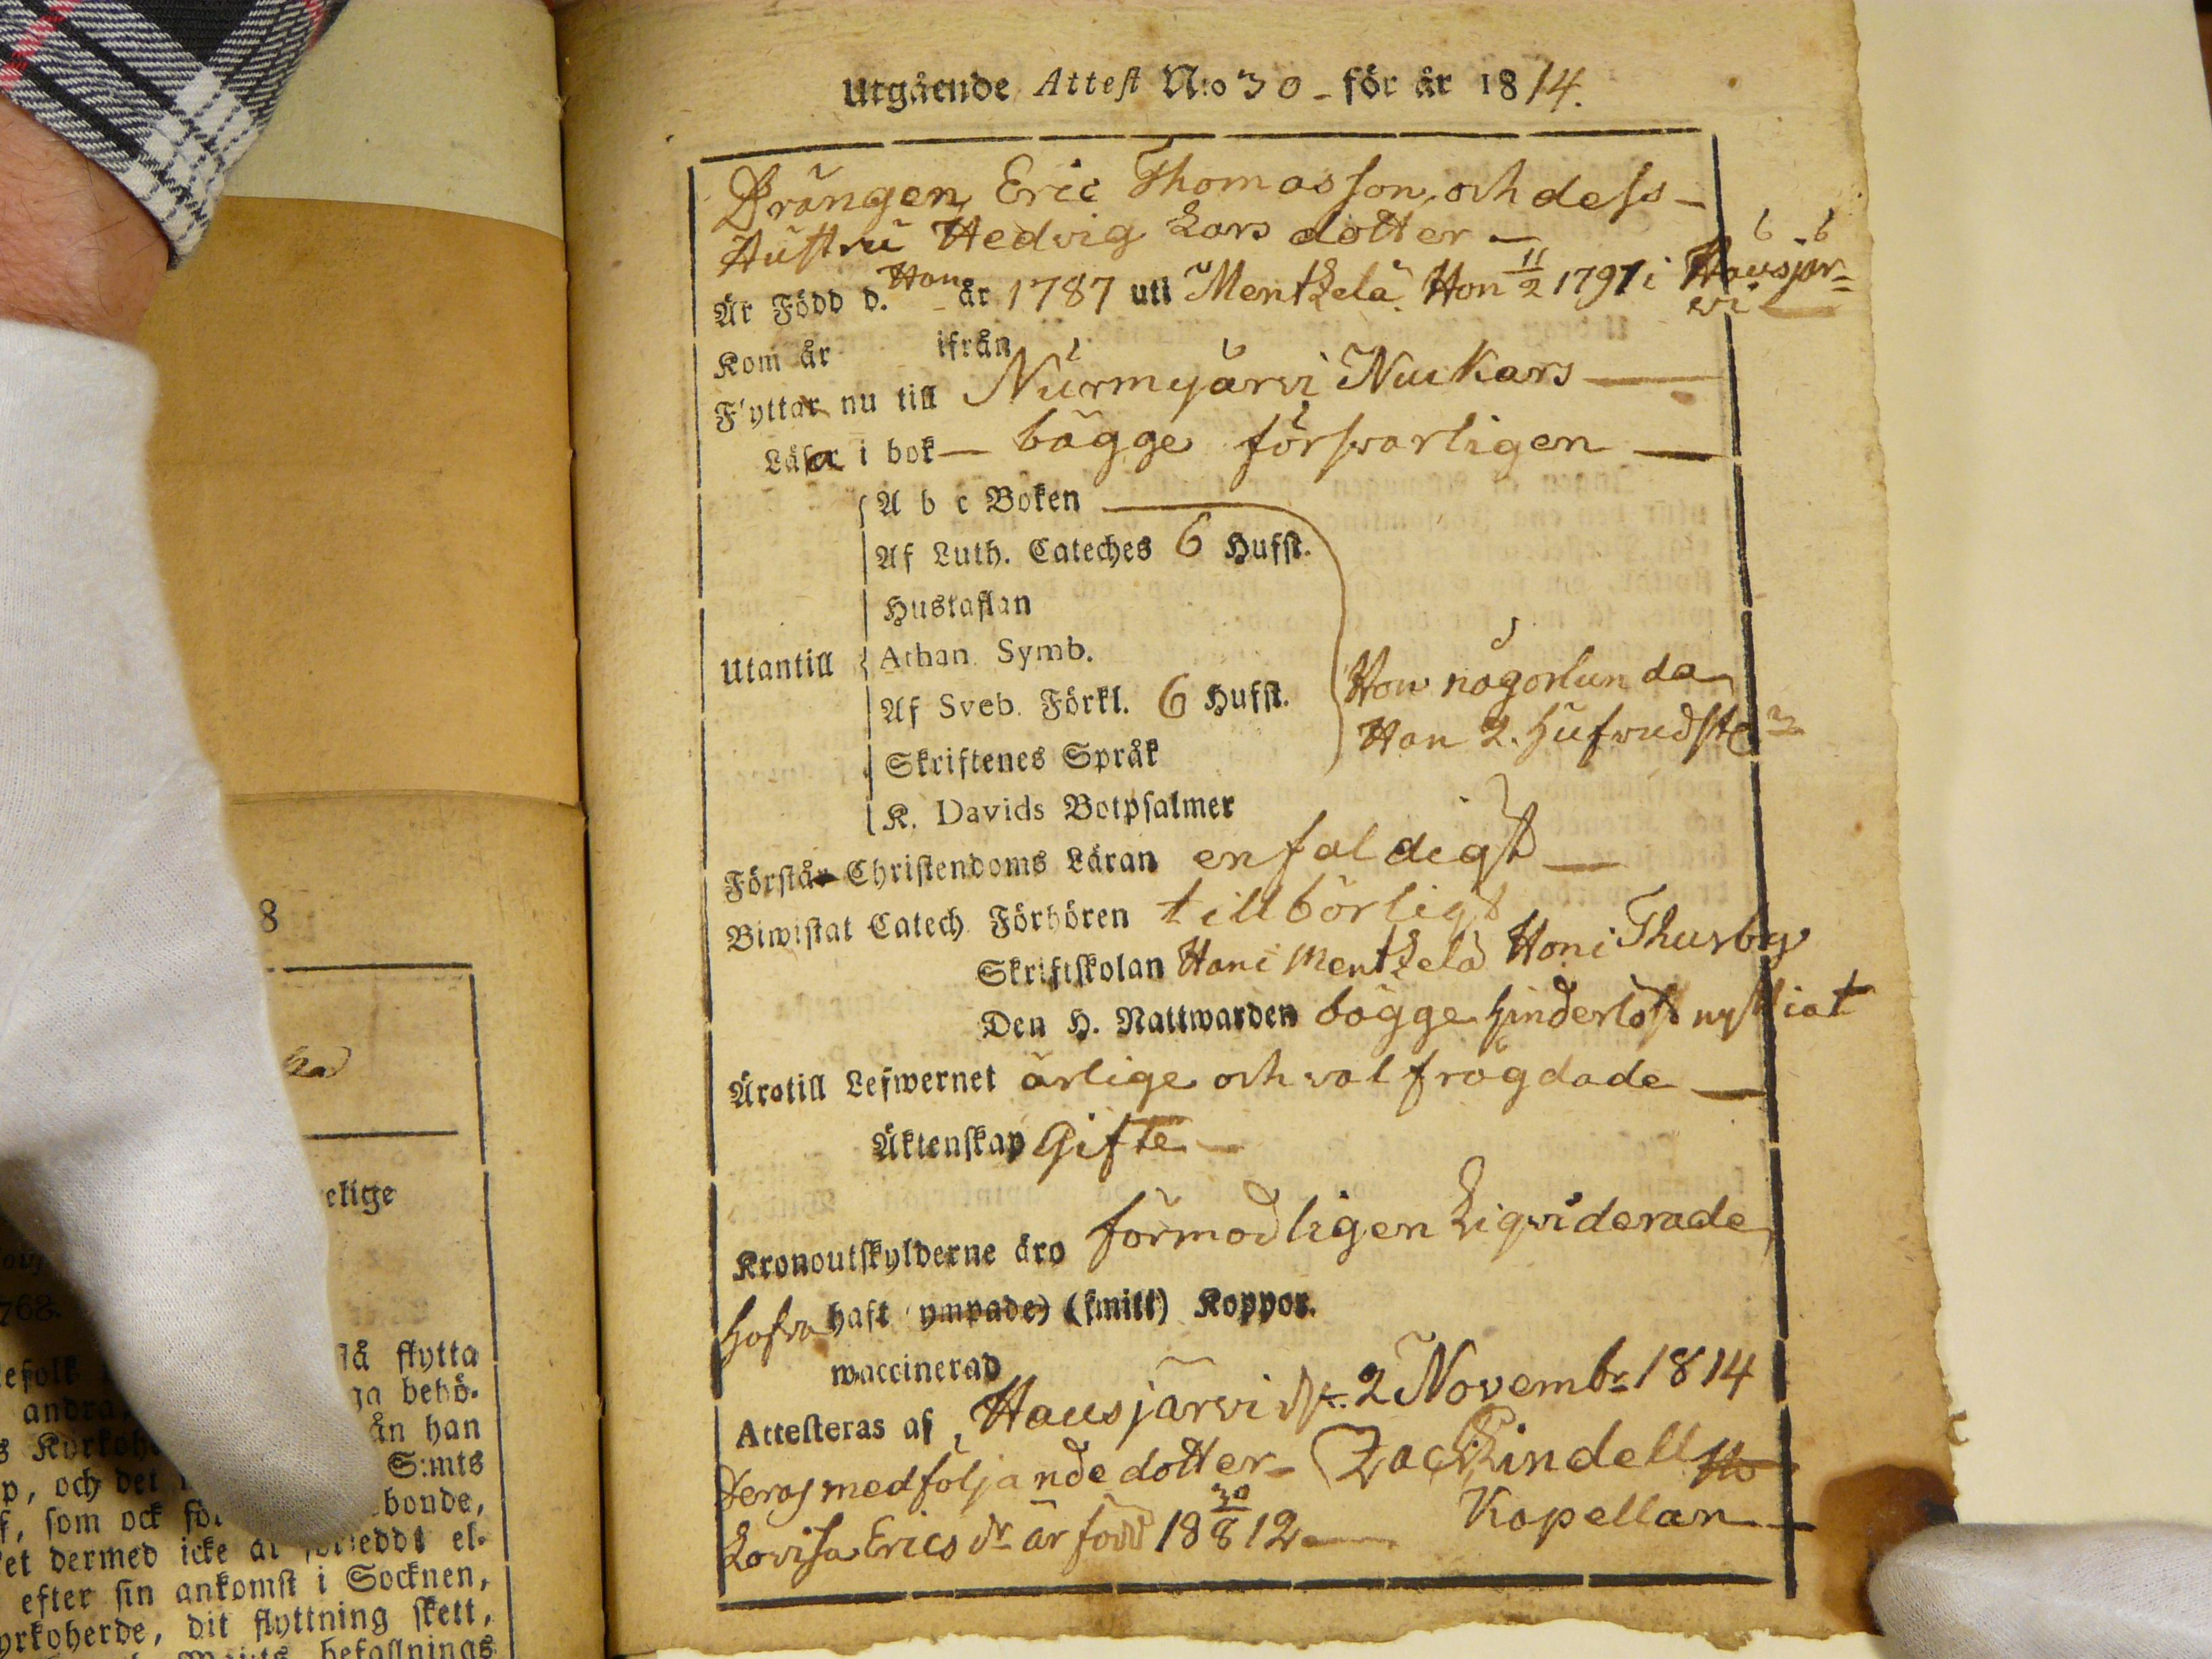 Utgående Attest N:o 30 - för år 1814.
Drängen Eric Thomasson, och dess
Hustru Hedvig Larsdotter
Är Född d. Han år 1787 uti Mentzelä Hon 11/2 1791 i Hausjär=
wi
Kom år ifrån
Flyttar nu till Nurmijärvi Nuckars
Läsa i bok bägge försvarligen
A b c Boken
Af Luth. Cateches 6 Hufst.
Hustaflan
Utantill Athan. Symb.
Af Sveb. Förkl. 6 Hufst.
Hon någorlunda
Han 2. Hufvudst
Skriftenes Språk
K. Davids Botpsalmer
Förstå Christendoms Läran enfaldigt
Biwistat Catech Förhören tillbörligt
Skriftskolan Han i Mentzelä Hon i Thusby
Den H. Nattwarden bägge hinderlöst nyttiat
Äro till Lefwernet ärlige och välfrägdade
Äktenskap Gifte
Kronoutskylderne äro förmodligen Liqviderade
Hafva haft ympade) (smitt) Koppor.
waccinerad
Attesteras af, Hausjärvi d. 2 Novembr 1814
Deras medföljande dotter Zach Lindell
Kapellan
Lovisa Erics dr är född 18 30/8 12
8
elige
768.
så flytta
ga behö-
ån han
S:mts
p, och det
bonde,
f, som ock för
et dermed icke är el-
efter sin ankomst i Socknen,
yrkoherde, dit flyttning skett,
befallnings